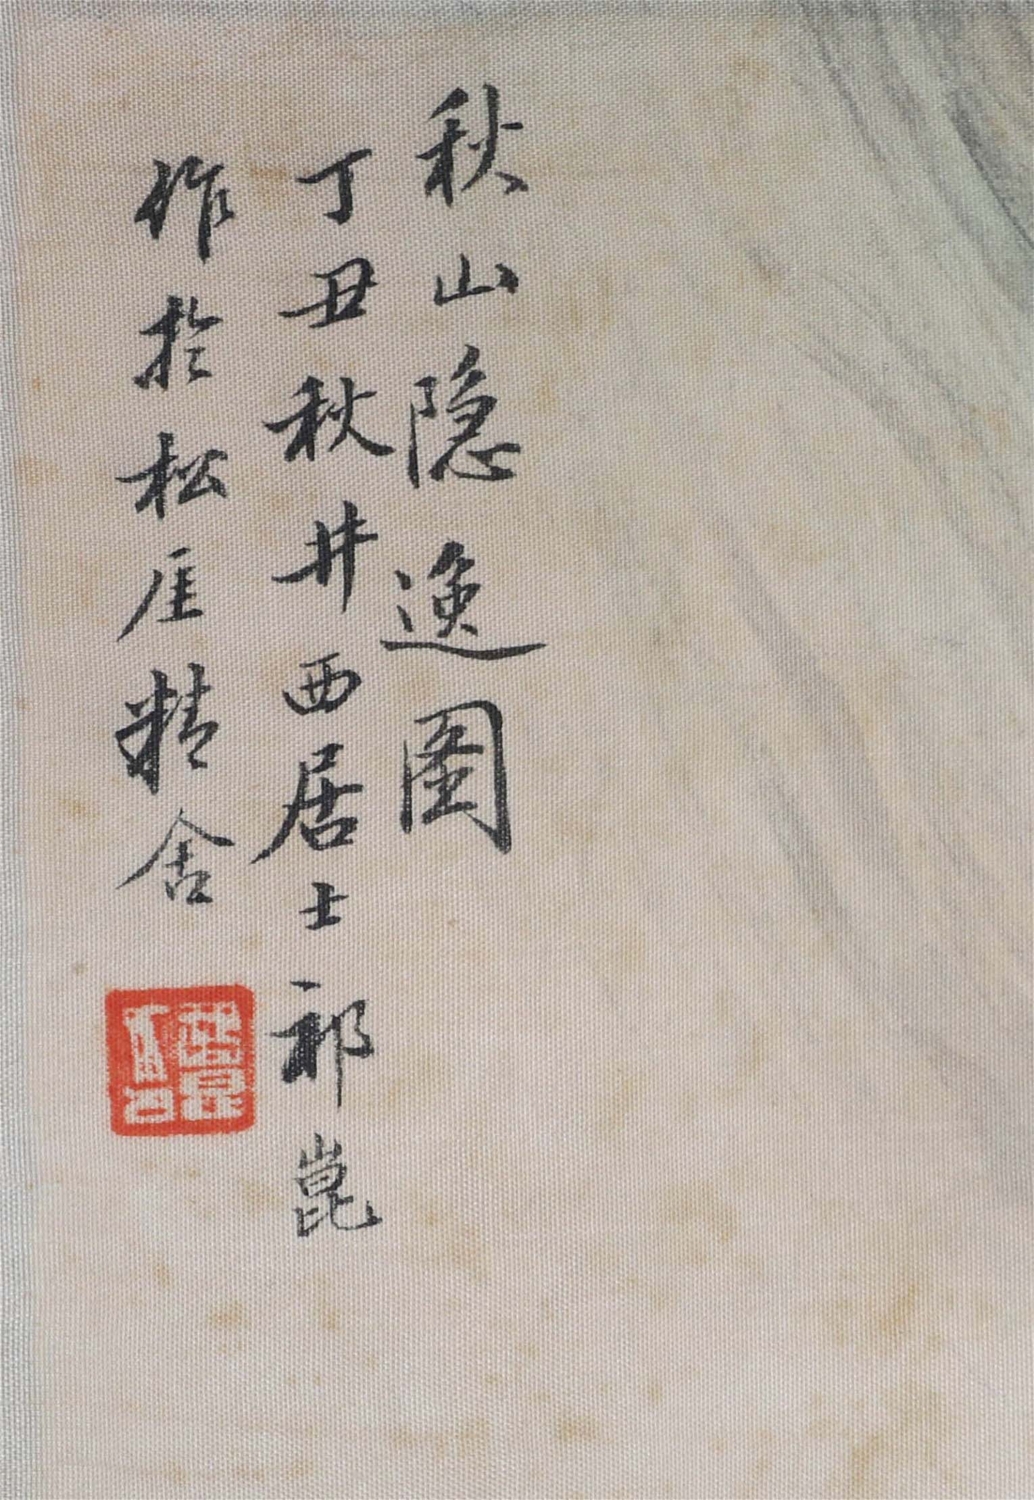 秋山隐逸图
丁丑秋井西居士祁崑
作於松厓精舍